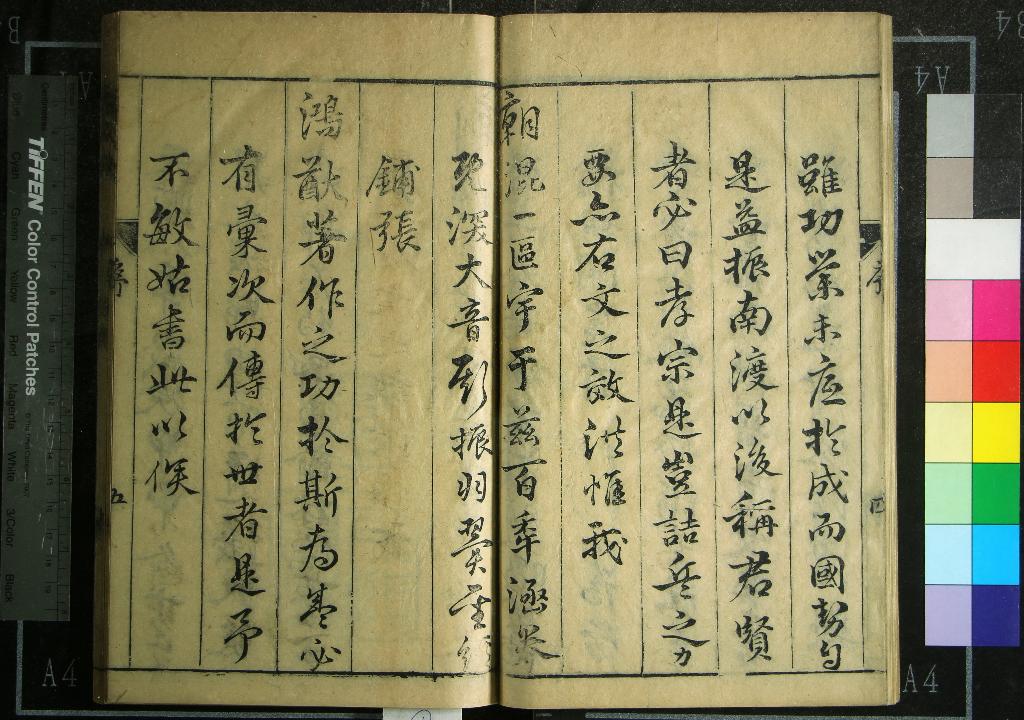 雖功業未底於成而國勢
是益振南渡以後稱君賢
者必曰孝宗是豈詰兵之力
要亦右文之效洪惟我
朝混一區宇于茲百年涵
既深大音斯振羽翼
鋪張
鴻猷著作之功於斯為盛必
有彙次而傳於世者是予
不敏姑書此以俟
序
四
序
五
TIFFEN Color Control Patches
Centimetres
Cyan
Green
Yellow
Red
Magenta
White
3/Color
Black
A4
A4
A4
A4
B4